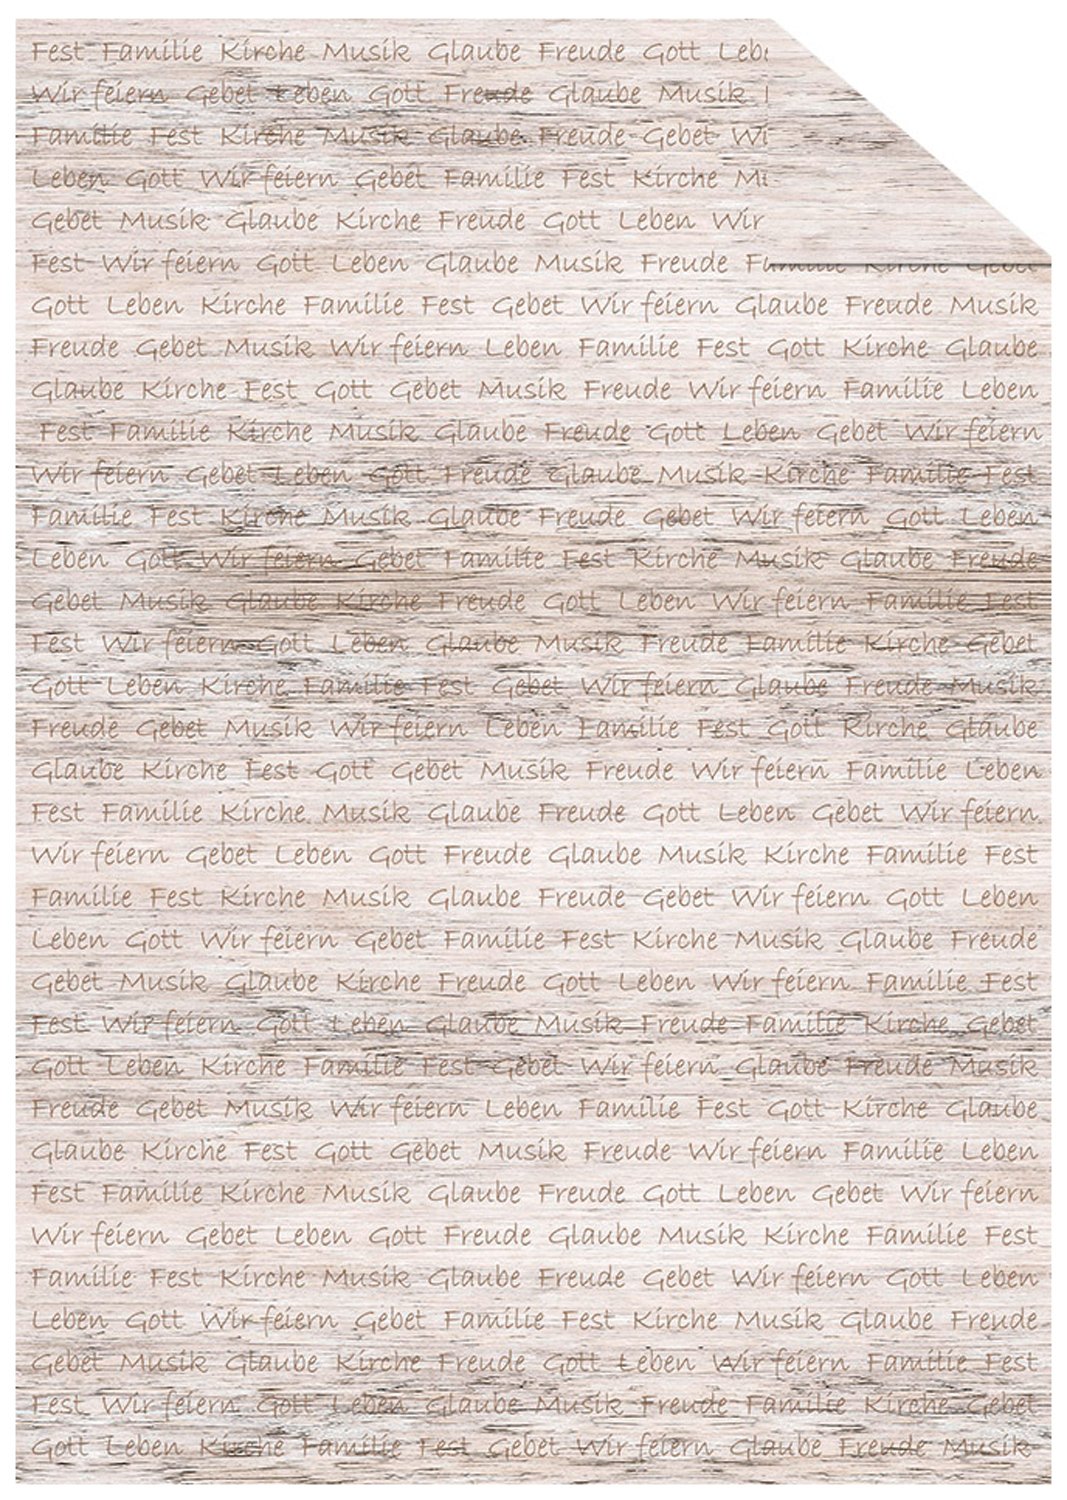 Fest Familie Kirche Musik Glaube Freude Gott
Wir feiern Gebet Leben Gott Freude Glaube Musik
Familie Fest Kirche Musik Glaube Freude Gebet
Leben Gott Wir feiern Gebet Familie Fest Kirche
Gebet Musik Glaube Kirche Freude Gott Leben Wir
Fest Wir feiern Gott Leben Glaube Musik Freude
Gott Leben Kirche Familie Fest Gebet Wir feiern Glaube Freude Musik
Freude Gebet Musik Wir feiern Leben Familie Fest Gott Kirche Glaube
Glaube Kirche Fest Gott Gebet Musik Freude Wir feiern Familie Leben
Fest Familie Kirche Musik Glaube Freude Gott Leben Gebet Wir feiern
Wir feiern Gebet Leben Gott Freude Glaube Musik Kirche Familie Fest
Familie Fest Kirche Musik Glaube Freude Gebet Wir feiern Gott Leben
Leben Gott Wir feiern Gebet Familie Fest Kirche Musik Glaube Freude
Gebet Musik Glaube Kirche Freude Gott Leben Wir feiern Familie Fest
Fest Wir feiern Gott Leben Glaube Musik Freude Familie Kirche Gebet
Gott Leben Kirche Familie Fest Gebet Wir feiern Glaube Freude Musik
Freude Gebet Musik Wir feiern Leben Familie Fest Gott Kirche Glaube
Glaube Kirche Fest Gott Gebet Musik Freude Wir feiern Familie Leben
Fest Familie Kirche Musik Glaube Freude Gott Leben Gebet Wir feiern
Wir feiern Gebet Leben Gott Freude Glaube Musik Kirche Familie Fest
Familie Fest Kirche Musik Glaube Freude Gebet Wir feiern Gott Leben
Leben Gott Wir feiern Gebet Familie Fest Kirche Musik Glaube Freude
Gebet Musik Glaube Kirche Freude Gott Leben Wir feiern Familie Fest
Fest Wir feiern Gott Leben Glaube Musik Freude Familie Kirche Gebet
Gott Leben Kirche Familie Fest Gebet Wir feiern Glaube Freude Musik
Freude Gebet Musik Wir feiern Leben Familie Fest Gott Kirche Glaube
Glaube Kirche Fest Gott Gebet Musik Freude Wir feiern Familie Leben
Fest Familie Kirche Musik Glaube Freude Gott Leben Gebet Wir feiern
Wir feiern Gebet Leben Gott Freude Glaube Musik Kirche Familie Fest
Familie Fest Kirche Musik Glaube Freude Gebet Wir feiern Gott Leben
Leben Gott Wir feiern Gebet Familie Fest Kirche Musik Glaube Freude
Gebet Musik Glaube Kirche Freude Gott Leben Wir feiern Familie Fest
Fest Wir feiern Gott Leben Glaube Musik Freude Familie Kirche Gebet
Gott Leben Kirche Familie Fest Gebet Wir feiern Glaube Freude Musik